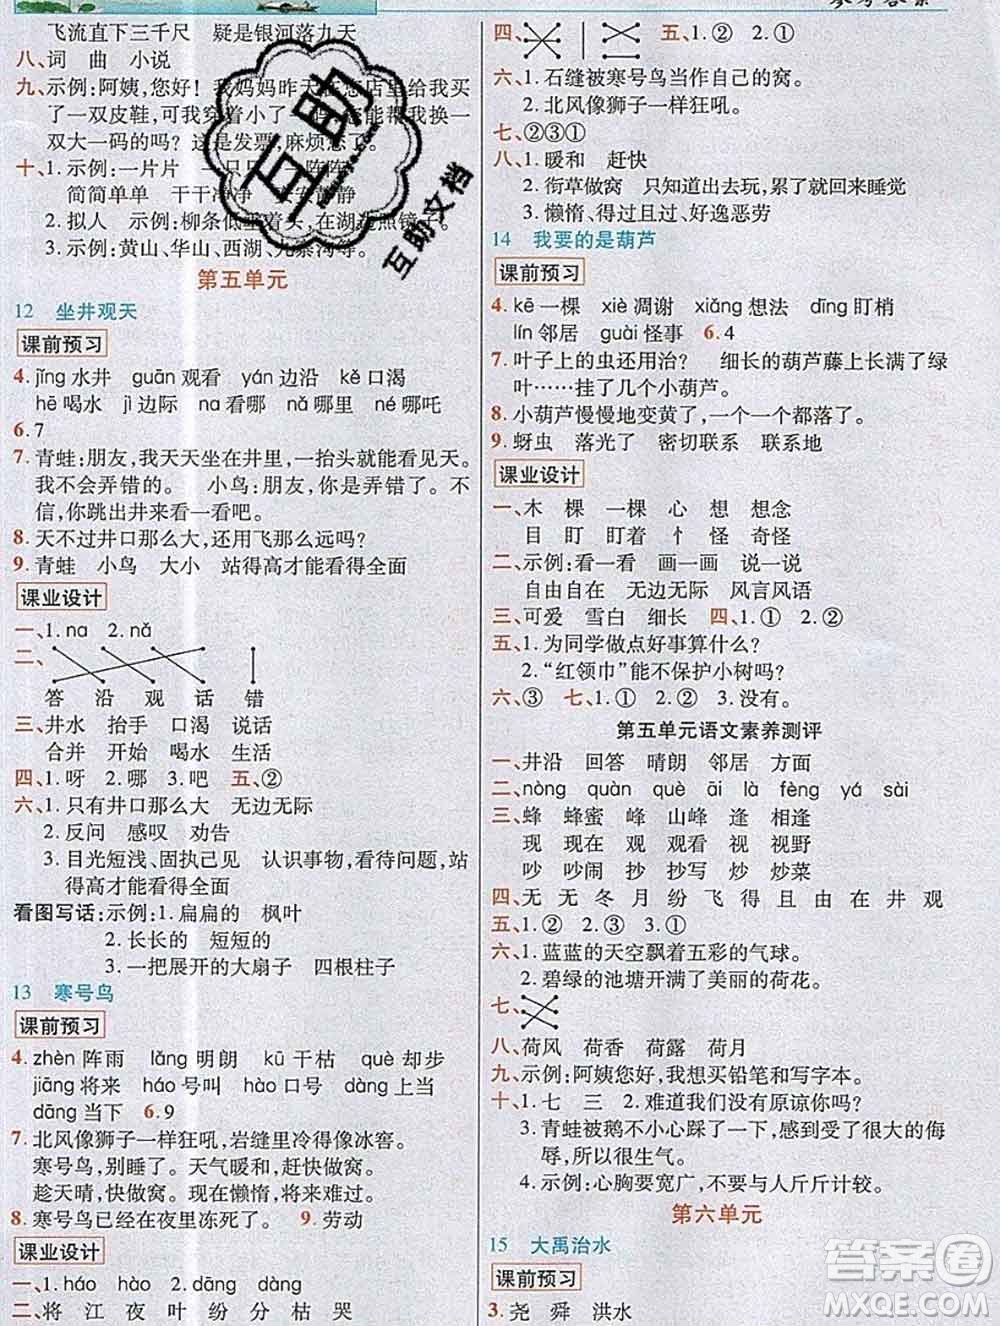 参考答案
飞流直下三千尺 疑是银河落九天
八、词 曲 小说
九、示例:阿姨,您好! 我妈妈昨天在您店里买了
一双皮鞋,可我穿着小了 能帮我换一
双大一码的吗? 这是发票,麻烦您了。
十、1.示例:一片片 一只只 一阵阵
简简单单 干干净净 安安静静
2.拟人 示例:柳条低垂着头,在湖边照镜
3.示例:黄山、华山、西湖、九寨沟等。
第五单元
12 坐井观天
课前预习
4.jǐng 水井 guān 观看 yán 边沿 kě 口渴
hē 喝水 jì 边际 na 看哪 nǎ 哪里 né 哪吒
6.7
7.青蛙:朋友,我天天坐在井里,一抬头就能看见天。
我不会弄错的。 小鸟:朋友,你是弄错了。不
信,你跳出井来看一看吧。
8.天不过井口那么大,还用飞那么远吗?
9.青蛙 小鸟 大小 站得高才能看得全面
课业设计
一、1.na 2.nǎ
二、
答 沿 观 话 错
三、井水 抬手 口渴 说话
合并 开始 喝水 生活
四、1.呀 2.哪 3.吧 五、②
六、1.只有井口那么大 无边无际
2.反问 感叹 劝告
3.目光短浅、固执己见 认识事物,看待问题,站
得高才能看得全面
看图写话:示例:1.扁扁的 枫叶
2.长长的 短短的
3.一把展开的大扇子 四根柱子
13 寒号鸟
课前预习
4.zhèn 阵雨 lǎng 明朗 kū 干枯 què 却步
jiāng 将来 háo 号叫 hào 口号 dàng 上当
dāng 当下 6.9
7.北风像狮子一样狂吼,岩缝里冷得像冰窖。
寒号鸟,别睡了。天气暖和,赶快做窝。
趁天晴,快做窝。现在懒惰,将来难过。
8.寒号鸟已经在夜里冻死了。 9.劳动
课业设计
一、1.háo hào 2.dāng dàng
二、将 江 夜 叶 纷 分 枯 哭
四、 五、1.② 2.①
六、1.石缝被寒号鸟当作自己的窝。
2.北风像狮子一样狂吼。
七、②③①
八、1.暖和 赶快
2.衔草做窝 只知道出去玩,累了就回来睡觉
3.懒惰、得过且过、好逸恶劳
14 我要的是葫芦
课前预习
4.kē 一棵 xiè 凋谢 xiǎng 想法 dīng 盯梢
lín 邻居 guài 怪事 6.4
7.叶子上的虫还用治? 细长的葫芦藤上长满了绿
叶……挂了几个小葫芦。
8.小葫芦慢慢地变黄了,一个一个都落了。
9.蚜虫 落光了 密切联系 联系地
课业设计
一、木 棵 一棵 心 想 想念
目 盯 盯着 忄 怪 奇怪
二、示例:看一看 画一画 说一说
自由自在 无边无际 风言风语
三、可爱 雪白 细长 四、1.① 2.②
五、1.为同学做点好事算什么?
2.“红领巾”能不保护小树吗?
六、③ 七、1.① 2.② 3.没有。
第五单元语文素养测评
一、井沿 回答 晴朗 邻居 方面
二、nòng quàn què āi là fèng yá sài
三、蜂 蜂蜜 峰 山峰 逢 相逢
现 现在 观 观看 视 视野
吵 吵闹 抄 抄写 炒 炒菜
四、无 无 冬 月 纷 飞 得 且 由 在 井 观
五、1.② 2.①
六、1.蓝蓝的天空飘着五彩的气球。
2.碧绿的池塘开满了美丽的荷花。
七、
八、荷风 荷香 荷露 荷月
九、示例:阿姨您好,我想买铅笔和写字本。
十、1.七 三 2.难道我们没有原谅你吗?
3.青蛙被鹅不小心踩了一下,感到受了很大的侮
辱,所以很生气。
4.示例:心胸要宽广,不要与人斤斤计较。
第六单元
15 大禹治水
课前预习
3.尧 舜 洪水
互助
互助文档
答案圈
MXQE.COM